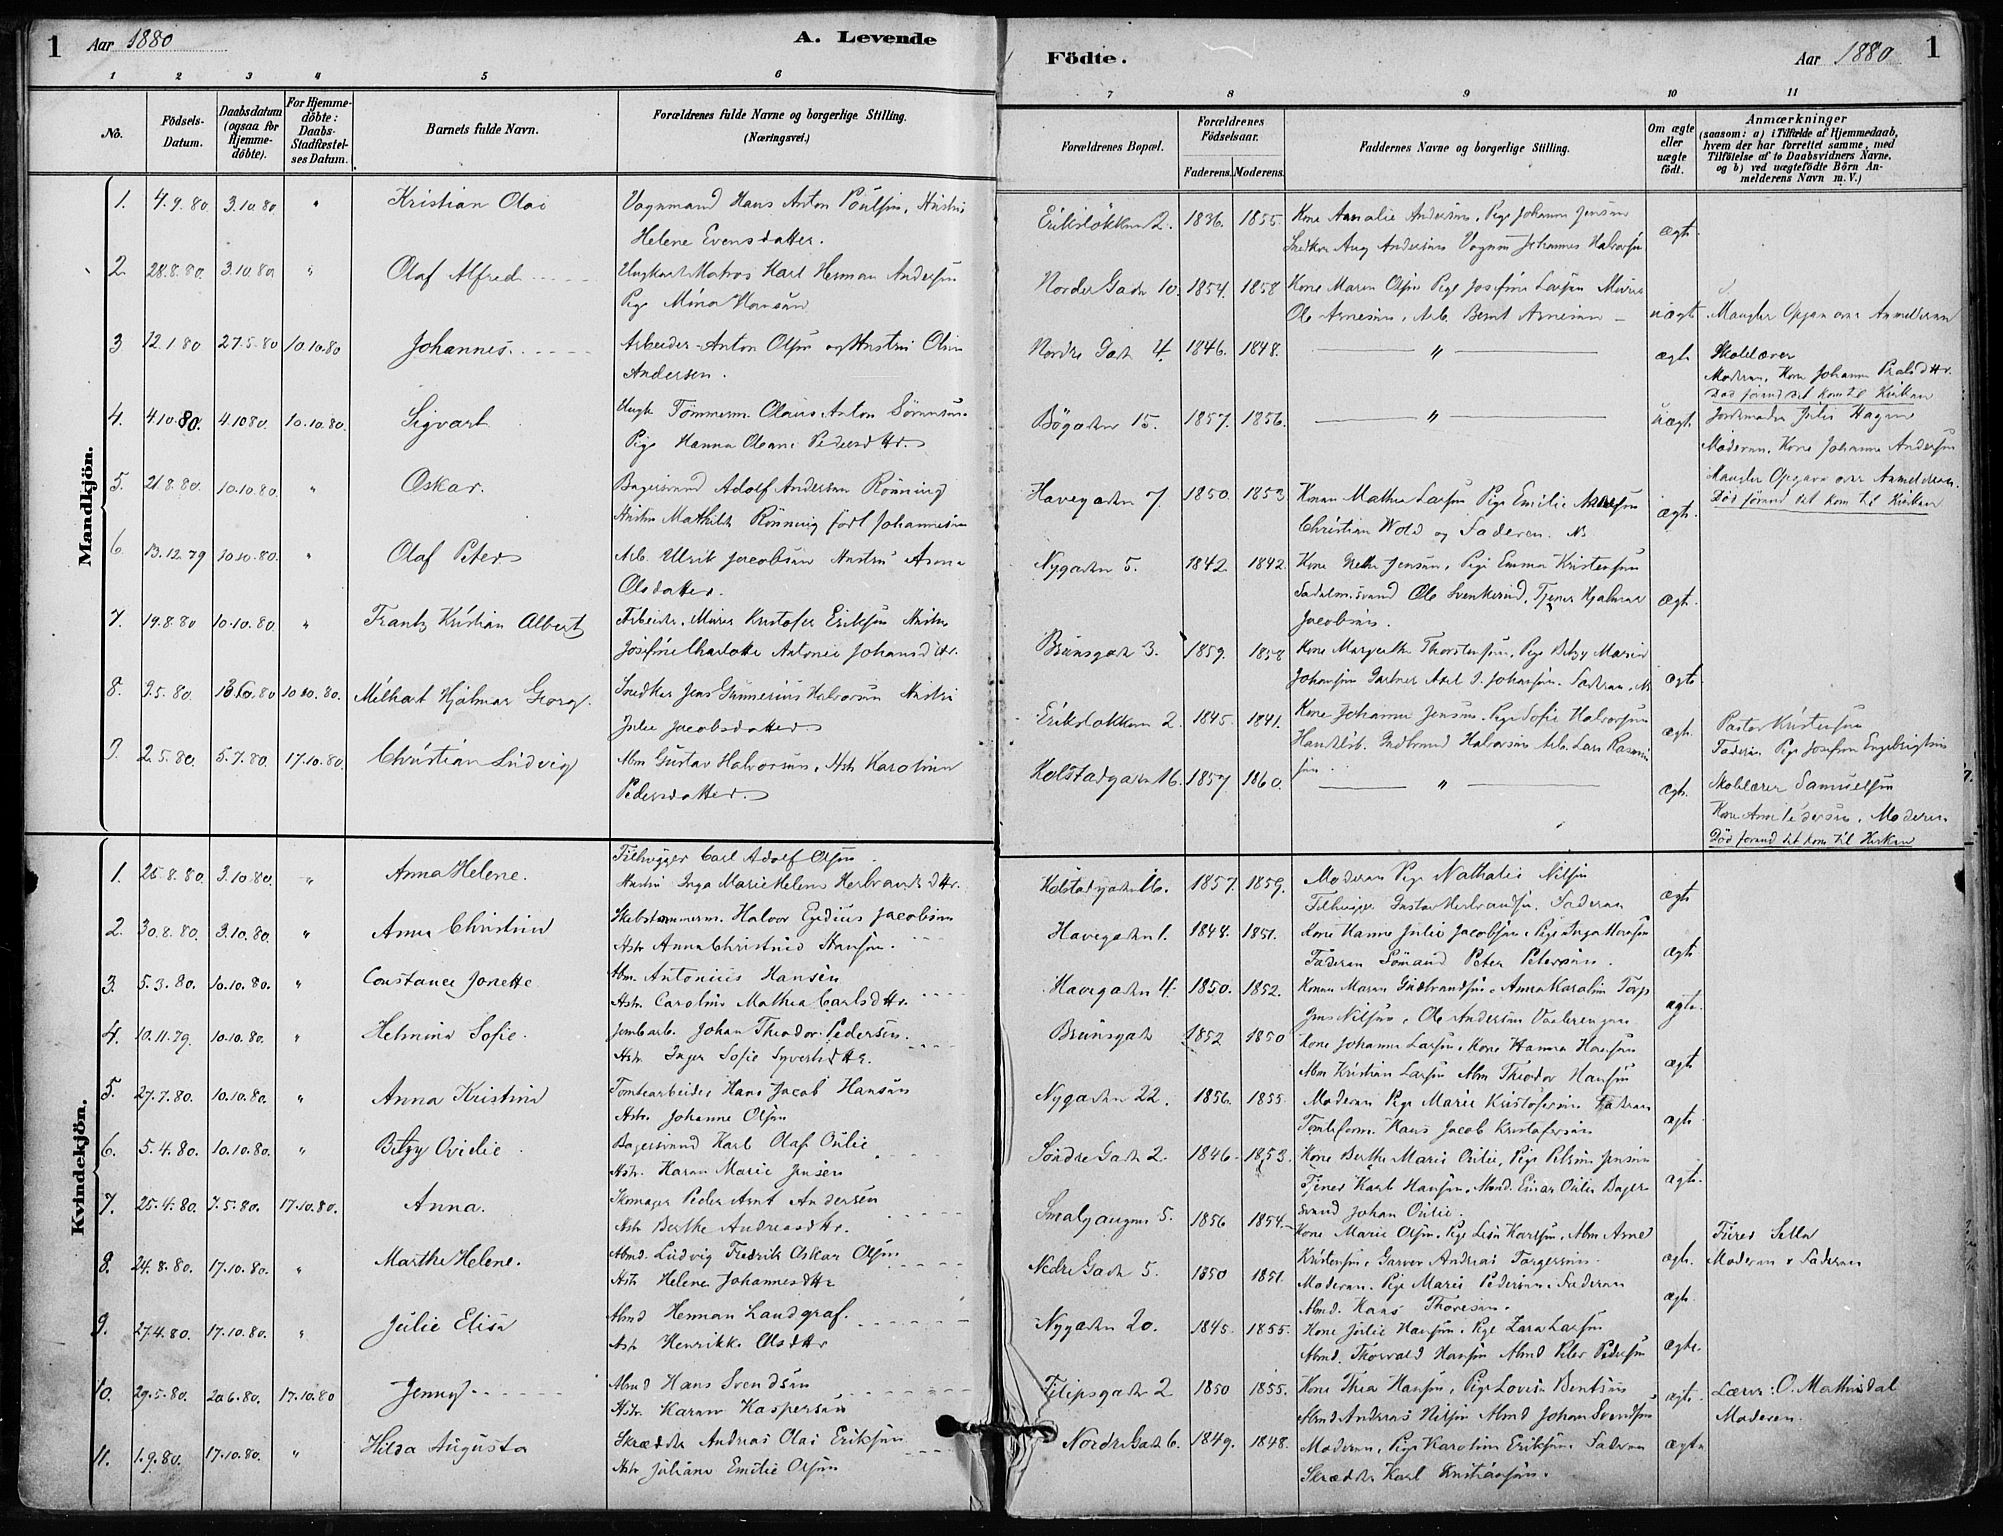 1 Aar 1880 A. Levende
Födte. Aar 1880 1
1 2 3 4 5 6
7 8 9 10 11
No.
Födsels-Datum.
Daabsdatum (ogsaa for Hjemme-döbte).
For Hjemme-döbte: Daabs-Stadfæstel-ses Datum.
Barnets fulde Navn.
Forældrenes fulde Navne og borgerlige Stilling. (Næringsvei.)
Forældrenes Bopæl.
Forældrenes Födselsaar.
Faderens. Moderens.
Faddernes Navne og borgerlige Stilling.
Om ægte eller uægte födt.
Anmærkninger
(saasom: a) i Tilfælde af Hjemmedaab,
hvem der har forrettet samme, med
Tilföielse af to Daabsvidners Navne,
og b) ved uægtefödte Börn An-
melderens Navn m. V.)
Mandkjön.
1. 4.9.80. 3.10.80 " Kristian Olai Vognmand Hans Anton Poulsen, Hustru
Helene Evensdatter.
Eriksløkken 2. 1836. 1855 Kone Amalie Andersen, Pige Johanne Jensen
Snedker Aug Andersen Vognm Johannes Halvorsen ægt.
2. 28.8.80. 3.10.80 " Olaf Alfred Ungkarl Matros Karl Herman Andersen
Pige Mina Hansen
Nordre Gade 10. 1854. 1858 Kone Maren Olsen Pige Josefine Larsen Murer
Ole Arnesen, Arb. Bernt Arnesen uægt Mangler Opgave over Anmelderen
3 12.1.80 27.5.80 10.10.80 Johannes. Arbeider Anton Olsen og Hustru Oline
Andersen.
Nordre Gade 4. 1846. 1848. " ægt. Skolelærer
Moderen, Kone Johanne Paalsdttr.
Død førend det kom til Kirken
4. 4.10.80. 4.10.80. 10.10.80. Sigvart Ungk. Tømmerm. Olaus Anton Sørensen
Pige Hanna Oleane Pedersdttr.
Bøgaden 15. 1857. 1856. " uægt. Jordemoder Julie Hagen
Moderen, Kone Johanne Andersen
Mangler Opgave over Anmelderen.
Død førend det kom til Kirken
5. 21.8.80. 10.10.80. " Oskar. Bagersvend Adolf Andersen Rønning
Hustru Mathilde Rønning født Johannesen
Havegaden 7. 1850. 1853 Konen Mathea Larsen Pige Emilie Andersen
Christian Wold og Faderen. ægt.
6. 13.12.79 10.10.80. " Olaf Peter Arb. Ulrik Jacobsen Hustru Anna
Olsdatter.
Nygaden 5. 1842. 1842. Kone Jensen, Pige Emma Kristensen
Ole Svenkerud, Tjener Hjalmar
Jacobsen. ægt.
7. 19.8.80 10.10.80. " Frantz Kristian Albert Arbeider, Murer Kristofer Eriksen Hustru
Josefine Charlotte Antonie Johansdttr.
Brunsgade 3. 1859. 1858 Kone Margrethe Thorstensen, Pige Betzy Marie
Johansen Gartner Axel I. Johansen. Faderen. ægte
8. 9.5.80. 10.10.80. Milhart Hjalmar Georg. Snedker Jens Gunnerius Halvorsen Hustru
Julie Jacobsdatter
Eriksløkken 2. 1845. 1841. Kone Johanne Jensen, Pige Sofie Halvorsen
Handelsb. Gudbrand Halvorsen Arb. Lars Rasmus
sen. ægt. Pastor Kristensen
Faderen Pige Josefine Engebrigtsen
9. 2.5.80. 5.7.80. 17.10.80. Christian Ludvig Abm Gustav Halvorsen, Hstr Karoline
Pedersdatter.
Kolstadgaden 16. 1857 1860. " ægt. Skolelærer Samuelsen
Kone Anne Pedersen, Moderen
Død førend det kom til Kirken
Kvindekjön.
1. 25.8.80. 3.10.80. " Anna Helene. Tilhugger Carl Adolf Olsen.
Hustru Inga Marie Helene Herbrandsdttr.
Kolstadgaden 16. 1857. 1859. Moderen Pige Nathalie Nilsen
Tilhugger Gustav Herbrandsen, Faderen ægt
2. 30.8.80. 3.10.80. " Anna Christine Skibstømmerm. Halvor Egidius Jacobsen
Hstr Anna Christine Hansen.
Havegaden 1. 1844. 1851. Kone Hanne Julie Jacobsen, Pige Inga Hansen
Faderen Sømand Peter Petersen. ægt
3. 5.3.80. 10.10.80. " Constance Jonette. Abm. Antonius Hansen
Hstr. Caroline Mathea Carlsdttr.
Havegaden 4. 1850. 1852. Konen Maren Gudbrandsen, Anna Karoline Torp
Jens Nilsen, Ole Andersen Vaalerengen ægte.
4. 10.11.79. 10.10.80. " Helmine Sofie. Jernbarb. Johan Theodor Pedersen.
Hstr. Inger Sofie Syvertsdttr.
Brunsgade 1852 1850 Kone Johanne Larsen, Kone Hanna Hansen
Abm Kristian Larsen Abm Theodor Hansen ægt
5. 27.7.80. 10.10.80. " Anna Kristine Tomtearbeider Hans Jacob Hansen
Hstr. Johanne Olsen
Nygaden 22. 1856. 1855. Moderen Pige Marie Kristofersen Faderen
Tomteform. Hans Jacob Kristofersen ægt.
6. 5.4.80. 10.10.80. " Betzy Ovidie. Bagersvend Karl Olaf Oulie
Hstr. Karen Marie Jensen
Søndre Gade 2. 1846. 1853. Kone Berthe Marie Oulie, Pige Petrine Jensen
Tjener Karl Hansen, Abmd. Einar Oulie Bager
svend Johan Oulie. ægt.
7. 25.4.80. 7.5.80. 17.10.80. Anna. Skomager Peder Arnt Andersen
Hstr Berthe Andreasdttr.
Smalgangen 5. 1856 1854. Kone Marie Olsen, Pige Lisa Karlsen, Abm Arne
Kristensen, Garver Andreas Torgersen. ægt. Fured Sella
Moderen & Faderen
8. 24.8.80. 17.10.80. " Marthe Helene. Abmd. Ludvig Fredrik Oskar Olsen
Hstr Helene Johannesdttr
Nedre Gade 5. 1850 1851. Moderen, Pige Marie Pedersen, Faderen
Abmd. Hans Thoresen. ægt.
9. 27.4.80. 17.10.80. " Julie Elise Abmd Herman Landgraf.
Hstr Henrikke Olsdttr
Nygaden 20. 1845. 1855. Kone Julie Hansen, Pige Lara Larsen
Abmd. Thorvald Hansen Abmd Peter Pedersen ægte.
10. 29.5.80. 20.6.80. 17.10.80 Jenny Abmd Hans Svendsen
Hstr. Karen Kaspersen
Filipsgade 2 1850 1855. Kone Thea Hansen, Pige Lovise Bentsen
Abmd Andreas Nilsen Abmd Johan Svendsen ægt. Lærer: O. Mathisdal
Moderen.
11. 1.9.80. 17.10.80. " Hilda Augusta Skrædder Andreas Olai Eriksen
Hstr Juliane Emilie Olsen
Nordre Gade 6. 1849. 1848. Moderen, Pige Karoline Eriksen, Faderen
Skrædder Karl Kristiansen. ægte